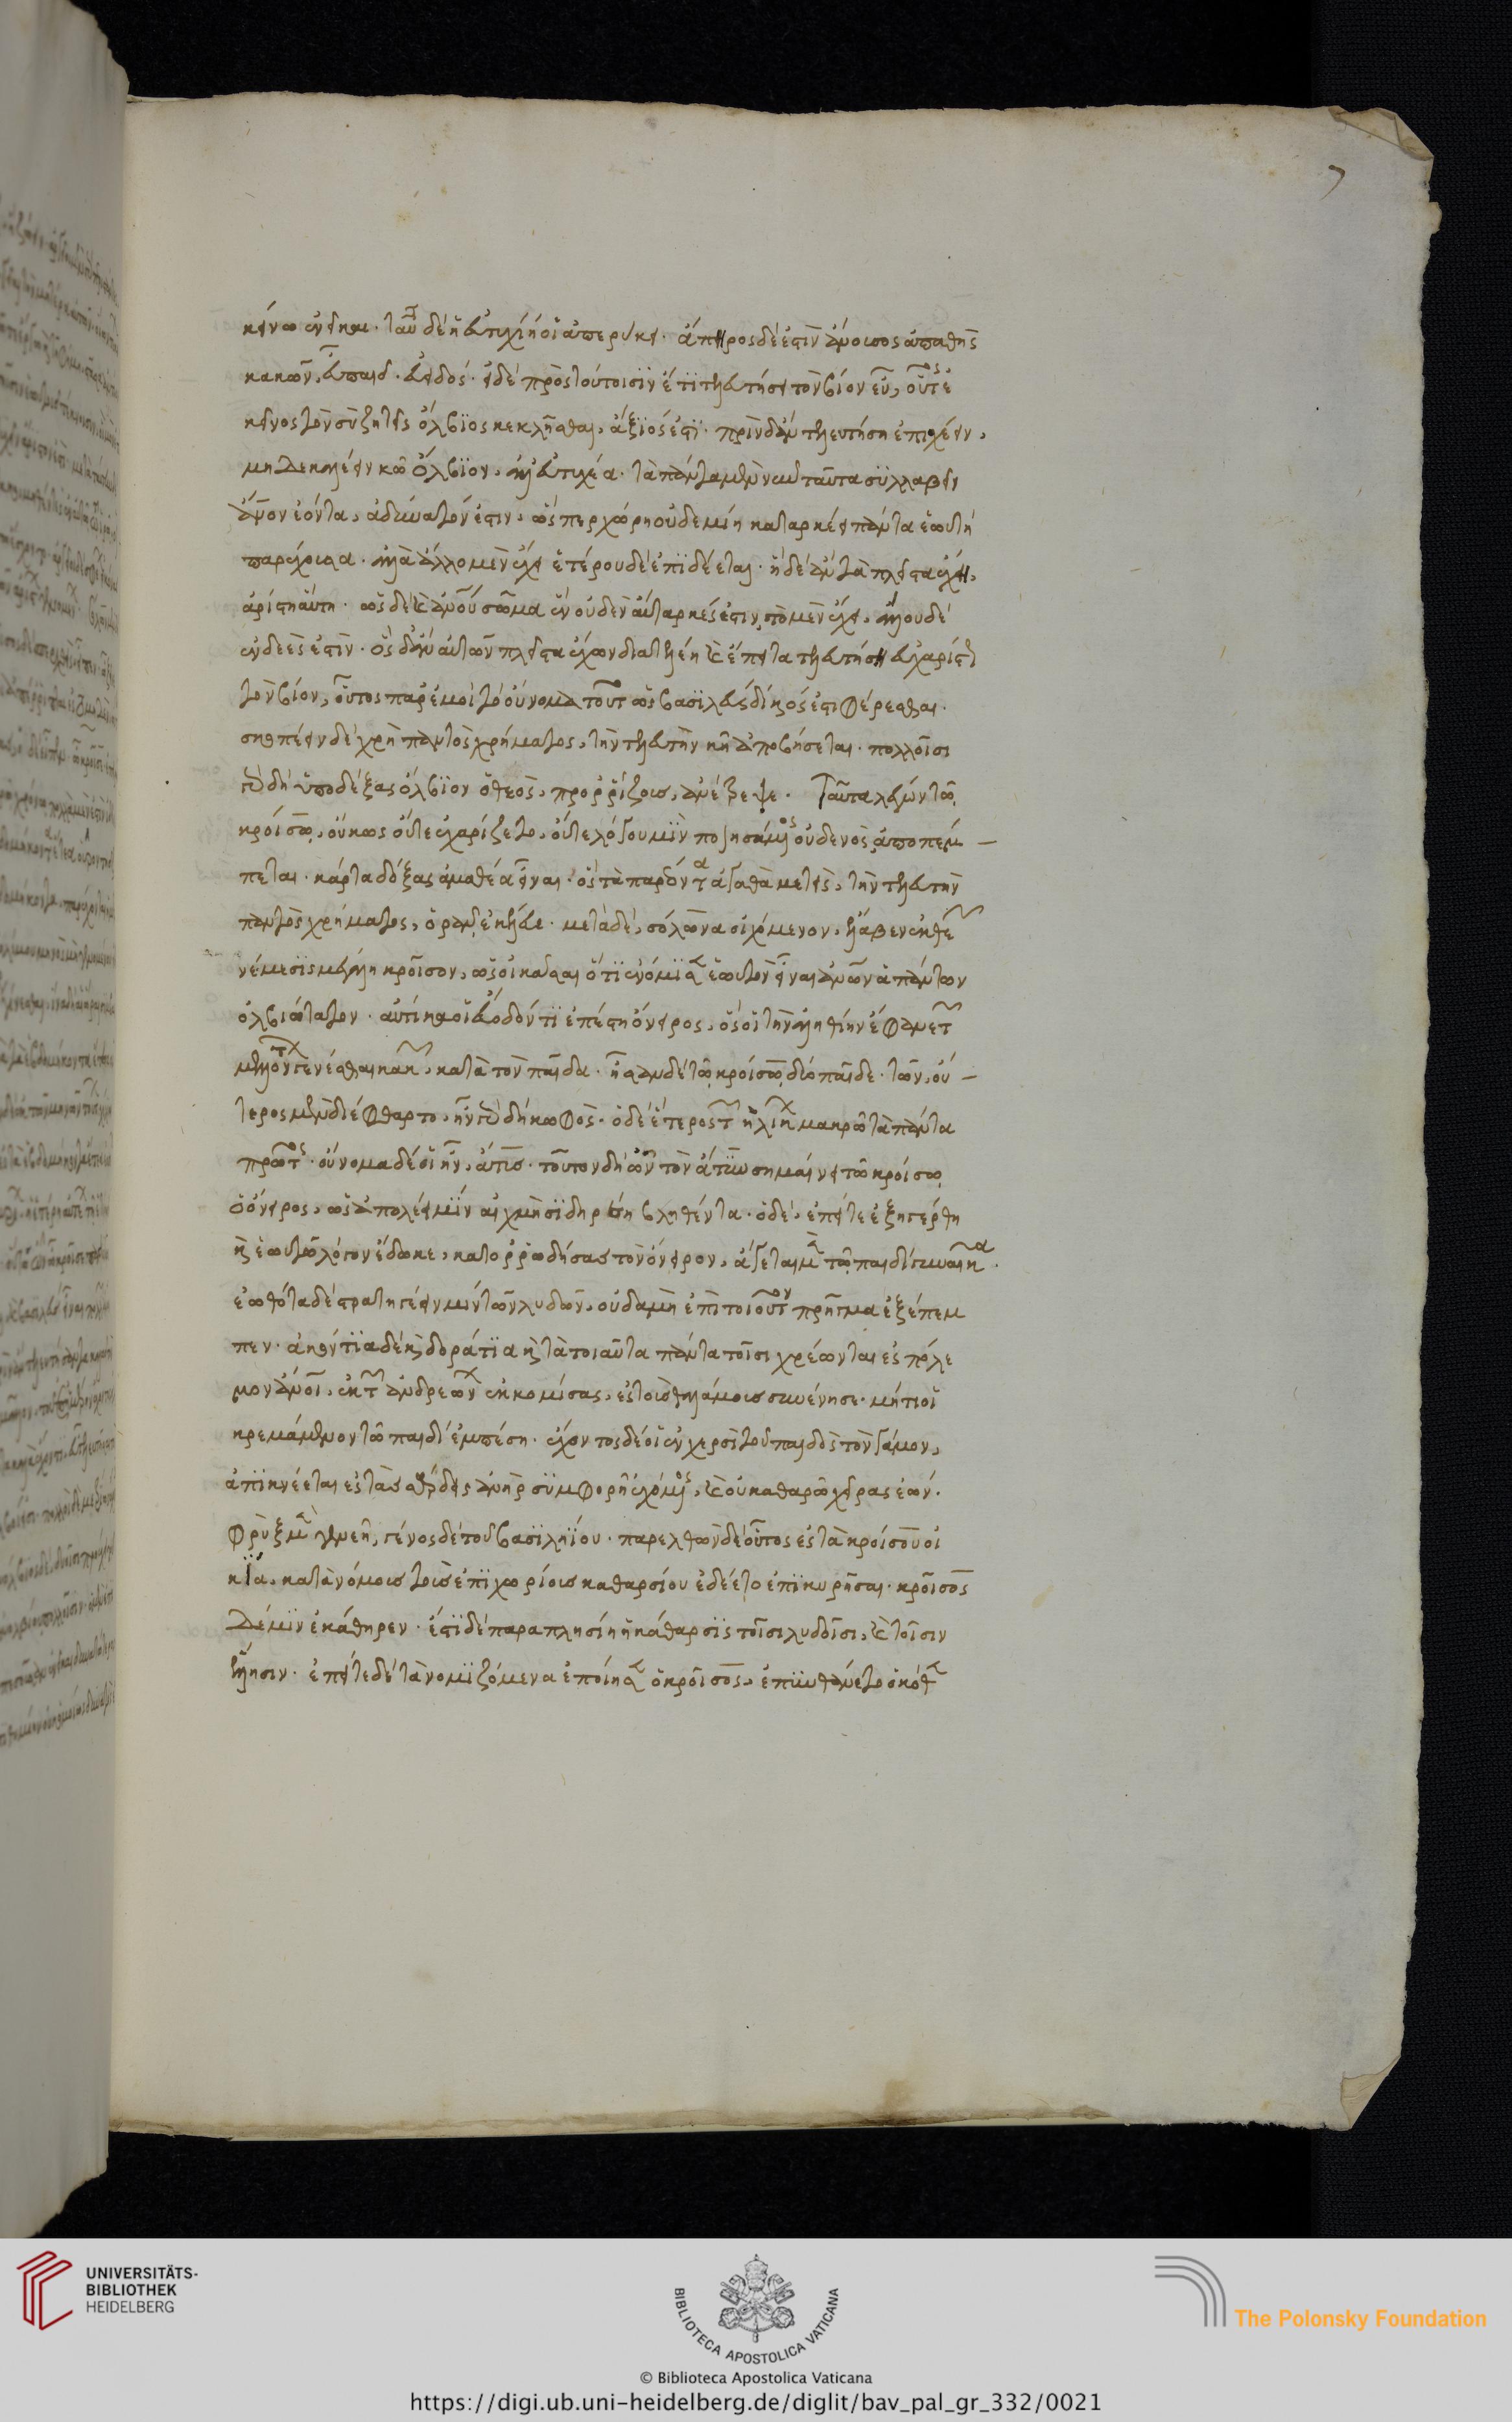 κείνω ἐνεῖκαι. ταῦτα δὲ ἡ εὐτυχίη οἱ ἀπερύκει. ἄπειρος δέ ἐστιν ἄνουσος ἀπαθὴς
κακῶν, εὔπαις. εὐειδής. εἰ δὲ πρὸς τούτοισιν ἔτι τελευτήσει τὸν βίον εὖ, οὗτος ἐ
κεῖνος τὸν σὺ ζητεῖς ὄλβιος κεκλῆσθαι, ἄξιός ἐστι. πρὶν δ' ἂν τελευτήση ἐπισχέειν,
μηδὲ καλέειν κω ὄλβιον, ἀλλ' εὐτυχέα. τὰ πάντα μέν νυν ταῦτα συλλαβεῖν
ἄνθρωπον ἐόντα, ἀδύνατόν ἐστιν, ὥσπερ χώρη οὐδεμίη καταρκέει πάντα ἑωυτῆ
παρέχουσα. ἀλλὰ ἄλλο μὲν ἔχει ἑτέρου δὲ ἐπιδέεται. ἣ δὲ ἂν τὰ πλεῖστα ἔχη,
ἀρίστη αὕτη. ὣς δὲ καὶ ἀνθρώπου σῶμα ἓν οὐδὲν αὔταρκές ἐστιν, τὸ μὲν ἔχει, ἄλλου δὲ
ἐνδεές ἐστιν. ὃς δ' ἂν αὐτῶν πλεῖστα ἔχων διατελέη καὶ ἔπειτα τελευτήση εὐχαρίστως
τὸν βίον, οὗτος παρ' ἐμοὶ τὸ οὔνομα τοῦτο ὡς βασιλεὺς δίκαιός ἐστι φέρεσθαι.
σκοπέειν δὲ χρὴ παντὸς χρήματος, τὴν τελευτὴν κῆ ἀποβήσεται. πολλοῖσι
γὰρ δὴ ὑποδέξας ὄλβιον ὁ θεὸς, προρρίζους, ἀνέτρεψε. Ταῦτα λέγων τῶ
κροίσω, οὔκως οὔτε ἐχαρίζετο, οὔτε λόγου μιν ποιησάμενος οὐδενὸς, ἀποπέμ-
πεται. κάρτα δόξας ἀμαθέα εἶναι. ὃς τὰ παρόντα ἀγαθὰ μετεὶς, τὴν τελευτὴν
παντὸς χρήματος, ὁρᾶν ἐκέλευε. μετὰ δὲ, σόλωνα οἰχόμενον, ἔλαβεν ἐκ θεοῦ
νέμεσις μεγάλη κροῖσον, ὡς εἰκάσαι ὅτι ἐνόμισε ἑωυτὸν εἶναι ἀνθρώπων ἁπάντων
ὀλβιώτατον. αὐτίκα δέ οἱ εὕδοντι ἐπέστη ὄνειρος, ὅς οἱ τὴν ἀληθείην ἔφαινε τῶν
μελλόντων γενέσθαι κακῶν, κατὰ τὸν παῖδα. ἦσαν δὲ τῶ κροίσω δύο παῖδε. τῶν, οὕ-
τερος μὲν διέφθαρτο, ἦν γὰρ δὴ κωφὸς. ὁ δὲ ἕτερος τῶν ἡλίκων μακρῶ τὰ πάντα
πρῶτος. οὔνομα δέ οἱ ἦν, ἄτυς. τοῦτον δὴ ὦν τὸν ἄτυν σημαίνει τῶ κροίσω
ὁ ὄνειρος, ὡς ἀπολέει μιν αἰχμῆ σιδηρέη βληθέντα. ὁ δὲ, ἐπείτε ἐξηγέρθη
καὶ ἑωυτῶ λόγον ἔδωκε, καταρρωδήσας τὸν ὄνειρον, ἄγεται μὲν τῶ παιδὶ γυναῖκα.
ἐωθότα δὲ στρατηγέειν μιν τῶν λυδῶν, οὐδαμῆ ἐπὶ τοιοῦτον πρῆγμα ἐξέπεμ
πεν. ἀκόντια δὲ καὶ δοράτια καὶ τὰ τοιαῦτα πάντα τοῖσι χρέωνται ἐς πόλε
μον ἄνθρωποι, ἐκ τῶν ἀνδρεώνων ἐκκομίσας, ἐς τοὺς θαλάμους συνένησε. μή τί οἱ
κρεμάμενον τῶ παιδὶ ἐμπέση. ἔχοντος δέ οἱ ἐν χερσὶ τοῦ παιδὸς τὸν γάμον,
ἀπικνέεται ἐς τὰς σάρδεις ἀνὴρ συμφορῆ ἐχόμενος, καὶ οὐ καθαρὸς χεῖρας ἐών.
φρὺξ μὲν γενεῆ, γένος δὲ τοῦ βασιληίου. παρελθὼν δὲ οὗτος ἐς τὰ κροίσου οἰ
κία, κατὰ νόμους τοὺς ἐπιχωρίους καθαρσίου ἐδέετο ἐπικυρῆσαι. κροῖσος
δέ μιν ἐκάθηρεν. ἔστι δὲ παραπλησίη ἡ κάθαρσις τοῖσι λυδοῖσι, καὶ τοῖσιν
ἕλλησιν. ἐπείτε δὲ τὰ νομιζόμενα ἐποίησε ὁ κροῖσος, ἐπυνθάνετο ὁκόθεν
7
UNIVERSITÄTS-
BIBLIOTHEK
HEIDELBERG
BIBLIOTECA APOSTOLICA VATICANA
The Polonsky Foundation
© Biblioteca Apostolica Vaticana
https://digi.ub.uni-heidelberg.de/diglit/bav_pal_gr_332/0021